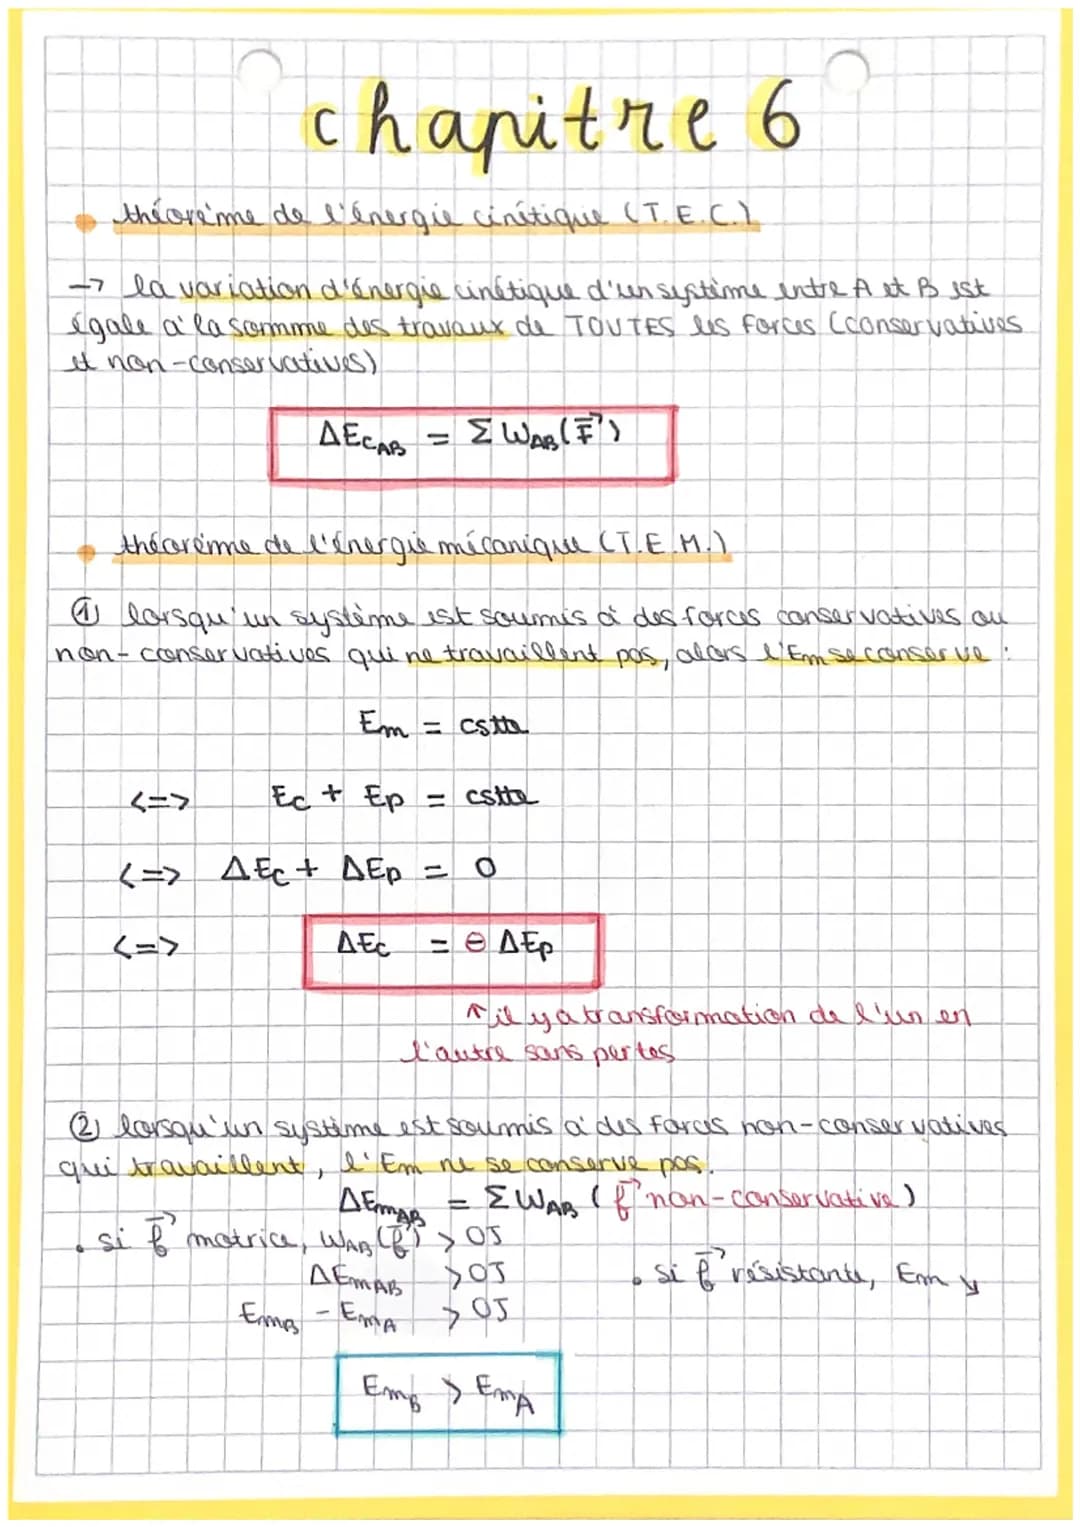 chapitre 6
théorème de l'énergie cinétique (T.E.C.)
→ la variation d'énergie cinétique d'un système entre A et B est
égale à la somme des travaux de TOUTES les forces (conservatives
et non-conservatives)
ΔEcAB = Σ WAB(F⃗)
théorème de l'énergie mécanique (T.E.M.)
① lorsqu'un système est soumis à des forces conservatives ou
non-conservatives qui ne travaillent pas, alors l'Em se conserve :
Em = cstte
<=> Ec + Ep = cstte
<=> ΔEc + ΔEp = 0
<=> ΔEc = ⊖ ΔEp
↑ il y a transformation de l'un en
l'autre sans pertes
② lorsqu'un système est soumis à des forces non-conservatives
qui travaillent, l'Em ne se conserve pas.
ΔEmAB = Σ WAB (f⃗ non-conservative)
• si f⃗ motrice, WAB(f⃗) > 0J
ΔEmAB > 0J
• si f⃗ résistante, Em ↘
EmB - EmA > 0J
EmB > EmA